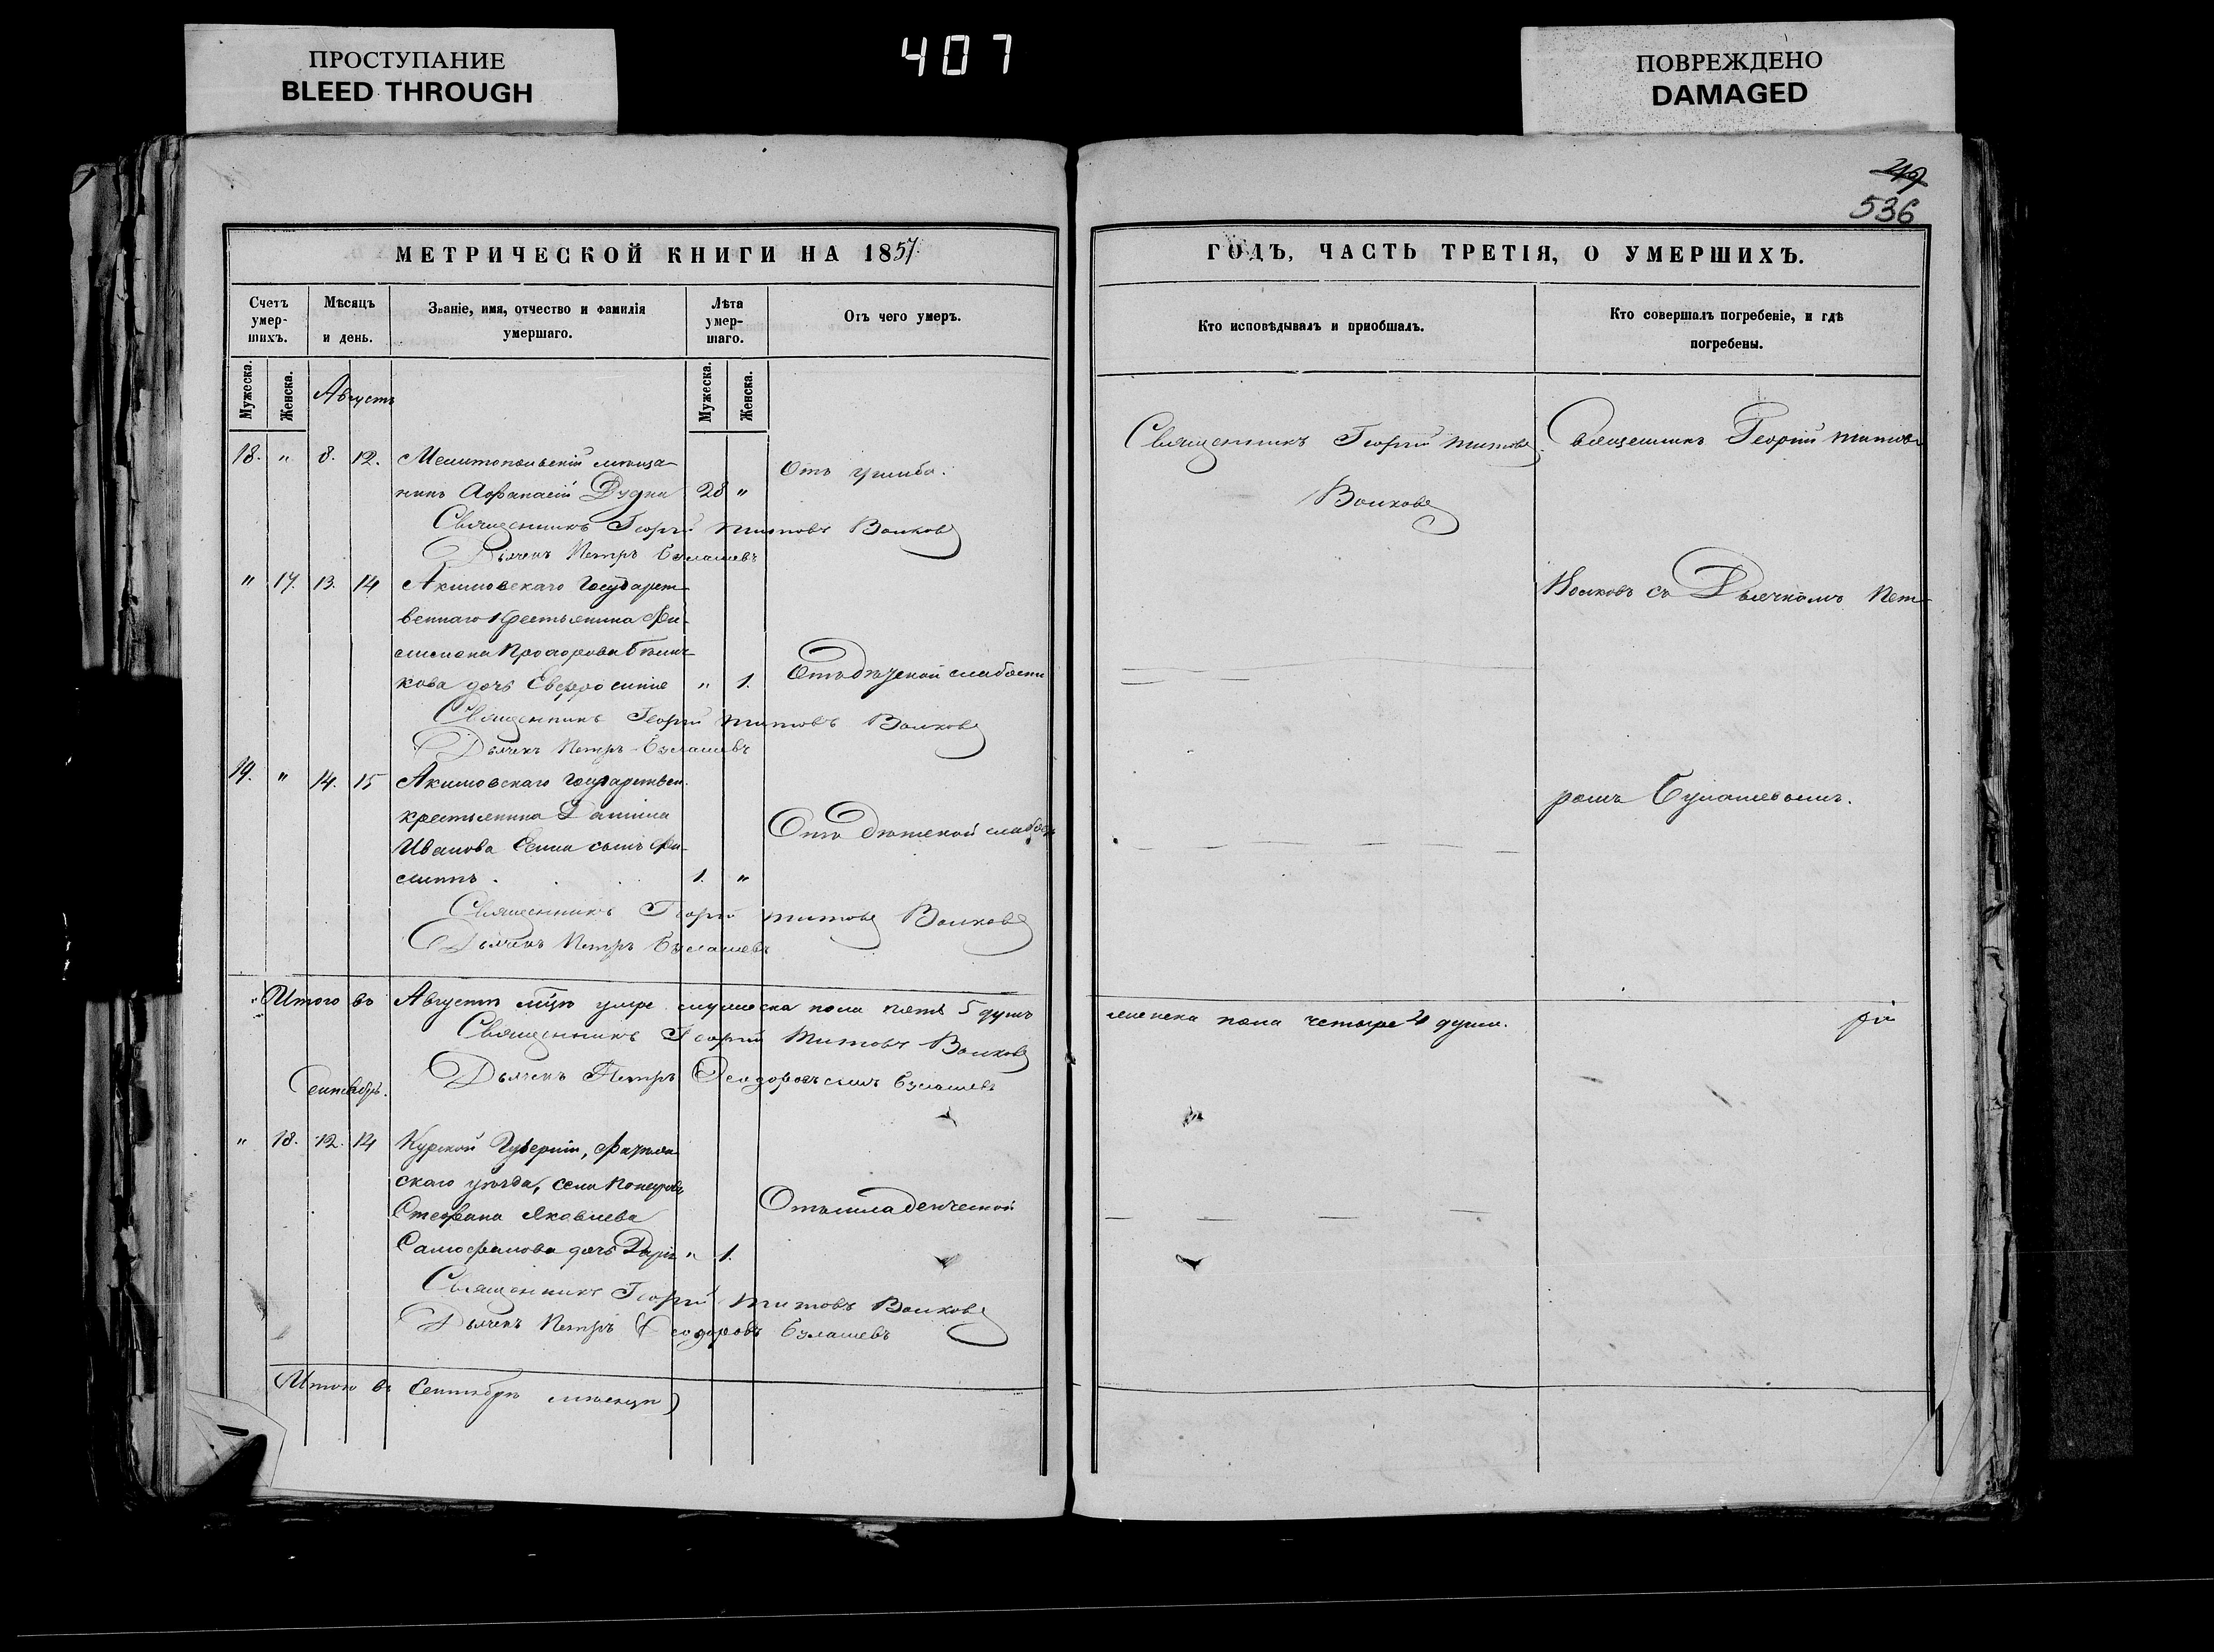 ПРОСТУПАНИЕ
BLEED THROUGH
407
ПОВРЕЖДЕНО
DAMAGED
536
МЕТРИЧЕСКОЙ КНИГИ НА 1857.
Счетъ умер-шихъ.
Мѣсяцъ и день.
Званіе, имя, отчество и фамилія умершаго.
Лѣта умер-шаго.
Отъ чего умеръ.
Мужеска.
Женска.
Мужеска.
Женска.
Августъ
18. " 8. 12. Мелитопольскій мѣща-
нинъ Аѳанасій Дудка 28 "
Отъ ушиба.
Священникъ Георгій Титовъ Волковъ
Дьячекъ Петръ Булашевъ
" 17. 13. 14 Акимовскаго Государст-
веннаго крестьянина Фи-
лимона Прохорова
кова дочь Евфросинія " 1. Отъ дѣтской слабости
Священникъ Георгій Титовъ Волковъ
Дьячекъ Петръ Булашевъ
19. " 14. 15 Акимовскаго Государствен.
крестьянина Даніила
Отъ дѣтской слабос
Иванова сынъ Фи-
липпъ. 1. "
Священникъ Георгій Титовъ Волковъ
Дьячекъ Петръ Булашевъ
Итого въ Августѣ мцѣ умре мужеска пола пять 5 душъ
Священникъ Георгій Титовъ Волковъ
Дьячекъ Петръ Ѳеодоровъ сынъ Булашевъ
Сентябрь.
" 18. 12. 14 Курской Губерніи,
скаго уѣзда, села
Стефана Яковлева
Отъ младенческой
дочь Дарія " 1.
Священникъ Георгій Титовъ Волковъ
Дьячекъ Петръ Ѳеодоровъ Булашевъ
Итого въ Сентябрѣ мѣсяцѣ
ГОДЪ, ЧАСТЬ ТРЕТІЯ, О УМЕРШИХЪ.
Кто исповѣдывалъ и приобшалъ.
Кто совершалъ погребеніе, и гдѣ
погребены.
Священникъ Георгій Титовъ
Волковъ
Священникъ Георгій Титовъ
Волковъ съ Дьячкомъ Пет-
ромъ Булашевымъ.
женска пола четыре 4 души.